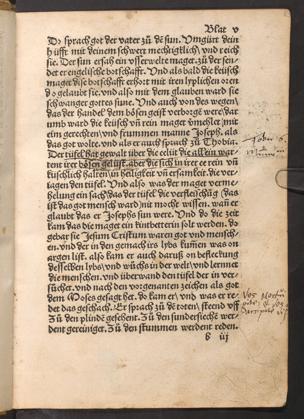 Blat v
Do sprach got der vater zů dē sun. Umgürt dein
hüfft mit deinem schwert mechtigklich, vnd reich
sie. Der sun ersach ein vsserwelte maget, zů der sen-
det er engelische botschafft. Und als bald die keüsch
maget dise botschafft erhört mit iren lyplichen oren
do gelaubt sie, vnd also mit dem glauben ward sie
schwanger gottes sune. Und auch von des wegen
das der handel dem bösen geist verborgē were, wa-
umb ward die keüsch vn̄ rein maget vmehlet mit
eim gerechten, vnd frummen manne Joseph, als
das got wolte, vnd als er auch sprach zů Thobia.
Der tüfel hat gewalt über die eelüt die allein war-
ten irer bösen gelust, aber die sich in irer ee rein vn̄
küschlich halten, in heligkeit vn̄ ersamkeit, die ver-
iagen den tüfel. Und also was der maget verme-
helung ein sach das der tüfel die
ist das got mensch ward nit mocht wissen, wan er
glaubt das er Josephs sun were. Und do die zeit
kam das die maget ein kintbetterin solt werden, do
gebar sie Jesum Cristum waren got vnd mensch-
en, vnd der in den gemach irs lybs kummen was on
argen list, also kam er auch daruß on befleckung
desselben lybs, vnd wůchs in der welt, vnd lernnet
die menschen, vnd überwand den tüfel der in ver-
sůchet, vnd nach den vorgenanten zeichen als got
dem Moses gesagt het, do kam er, vnd was er re-
det das geschach. Er sprach zů dē toten, steend vff
Zů den plindē gesehent. Zů den sundersiechē wer-
dent gereiniget. Zů den stummen werdent reden.
b iij